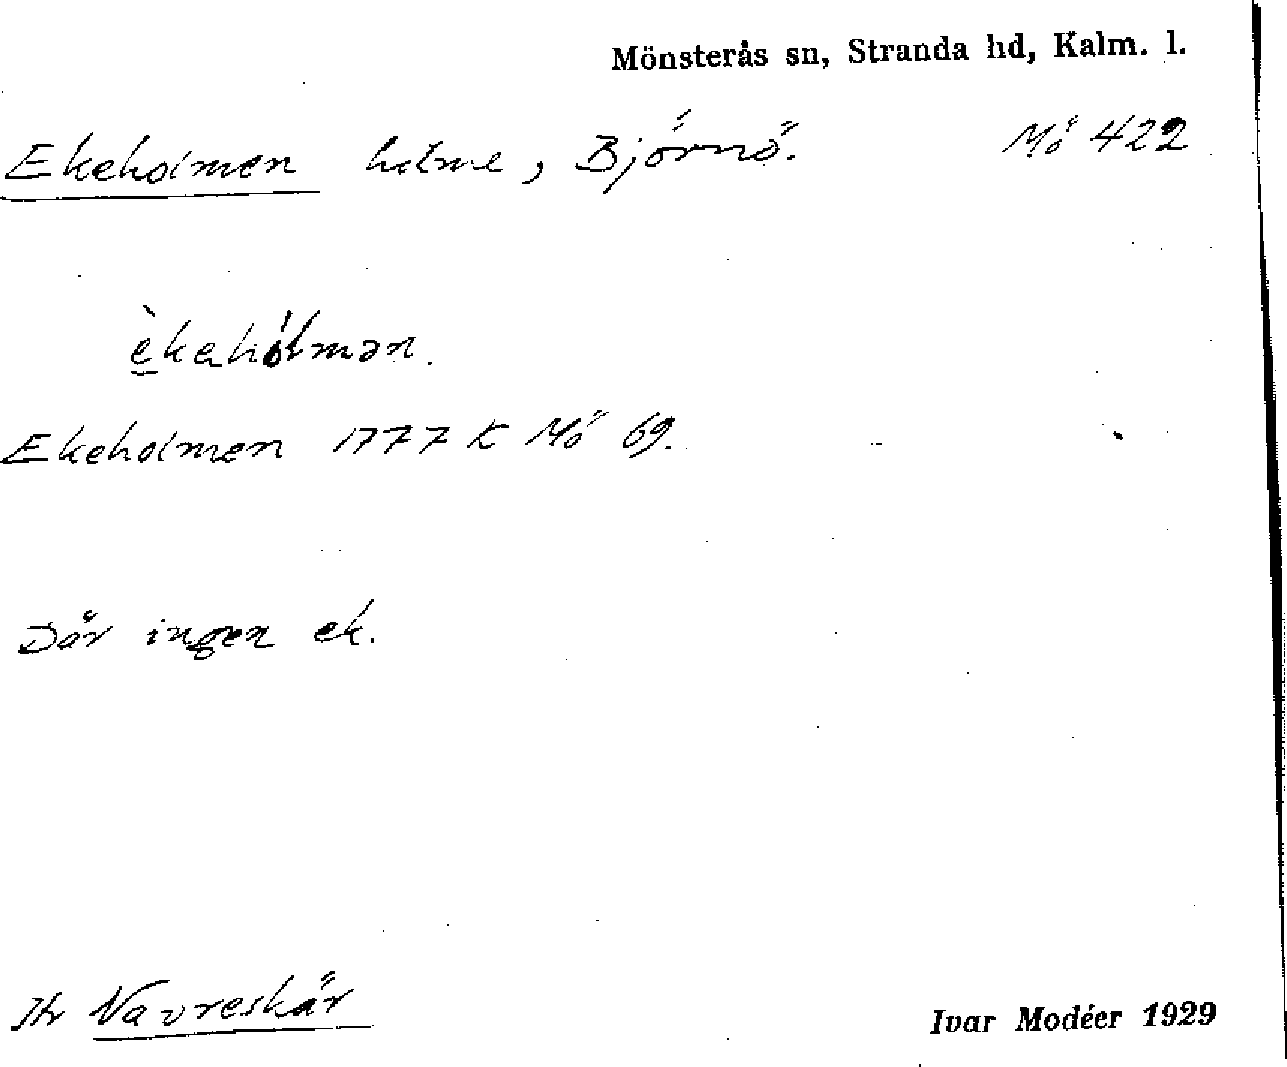 Mönsterås sn, Stranda hd, Kalm. l.
Ekeholmen holme, Björnö. Mö 422
èkahólmən.
Ekeholmen 1777 K Mö 69.
Där ingen ek.
Jfr Navreskär
Ivar Modéer 1929